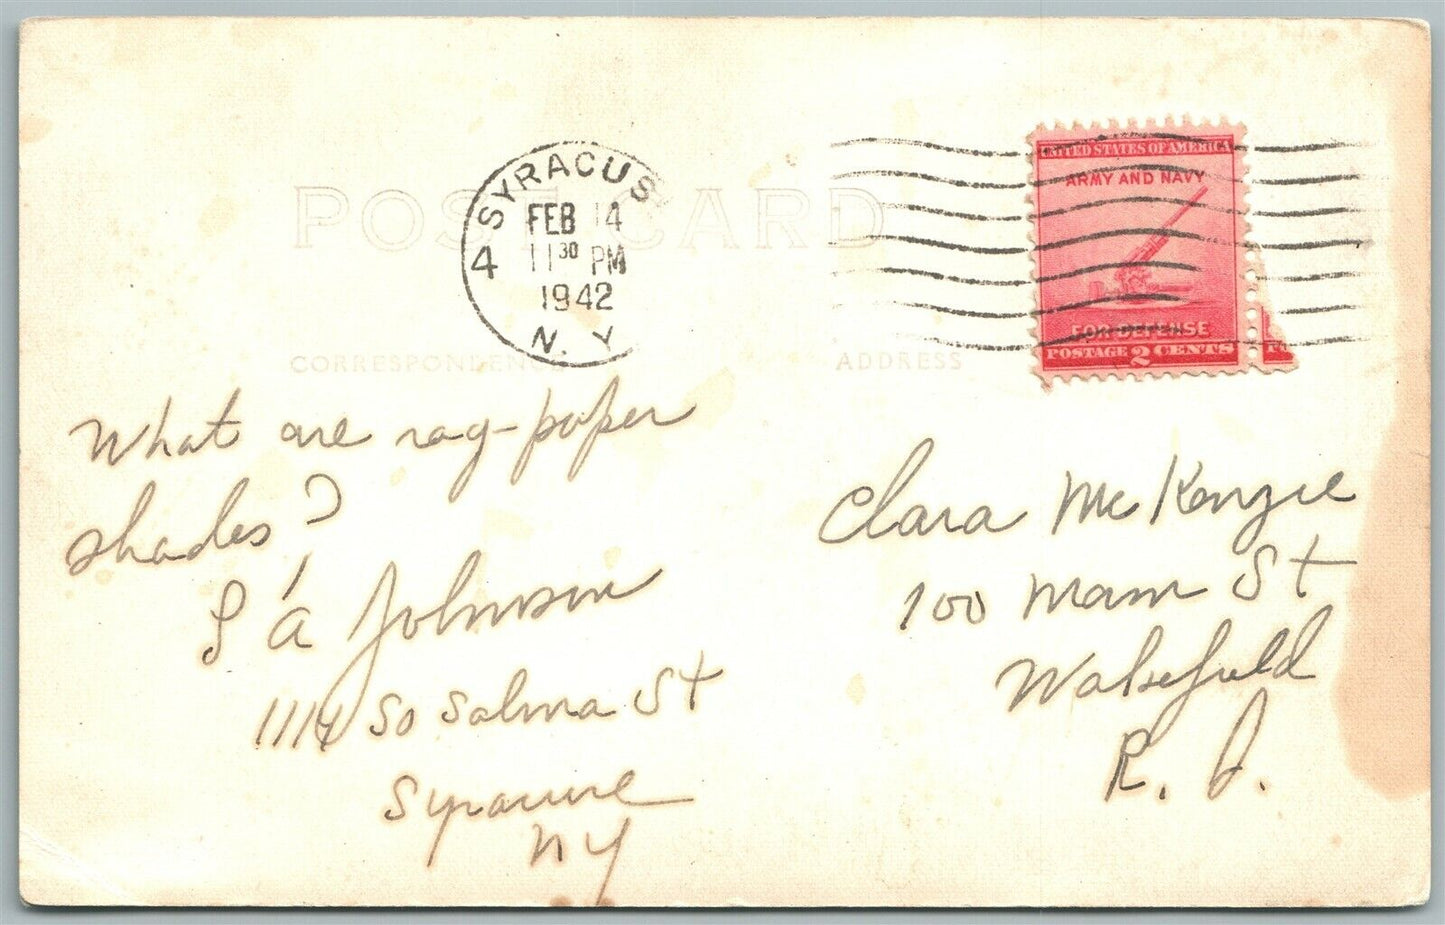 POST CARD
SYRACUS
4
FEB 14
11 30 PM
1942
N. Y
UNITED STATES OF AMERICA
ARMY AND NAVY
FOR DEFENSE
POSTAGE 2 CENTS
CORRESPONDENCE
ADDRESS
What are rag-paper
shades?
S A Johnson
So Salina St
Syracuse
NY
Clara McKenzie
100 Main St
Wakefield
R. I.